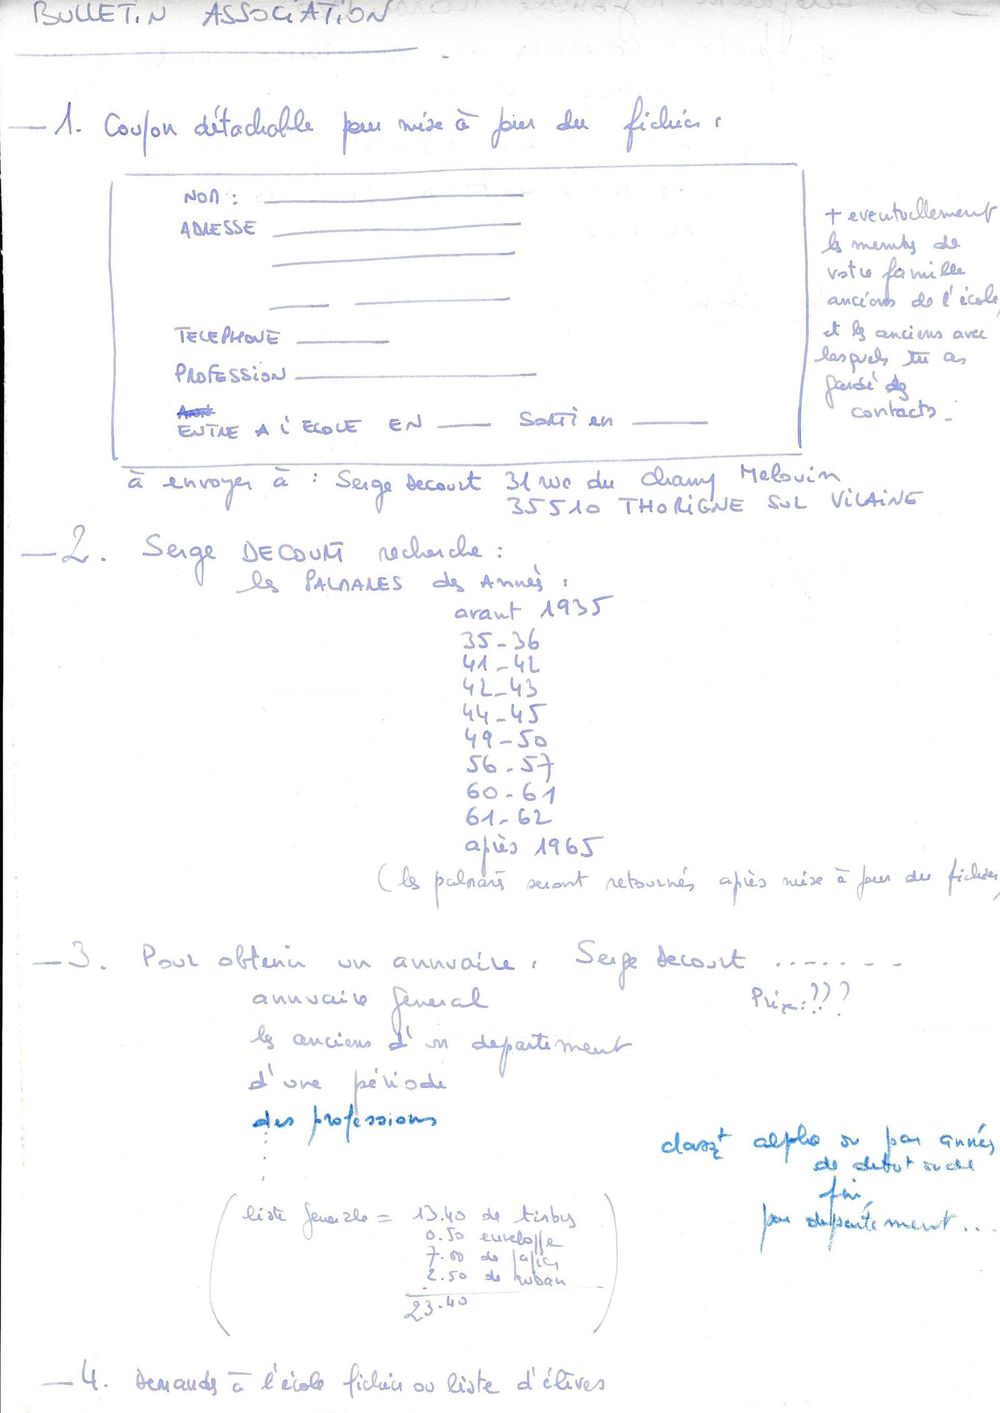 BULLETIN ASSOCIATION
— 1. Coupon détachable pour mise à jour du fichier :
NOM :
ADRESSE
TELEPHONE
PROFESSION
ENTRE A L'ECOLE EN ____ Sorti en ____
+ eventuellement
les membres de
votre famille
anciens de l'école,
et les anciens avec
lesquels tu as
gardé des
contacts -
à envoyer à : Serge Decourt 31 rue du Champ Melouin
35510 THORIGNE SUR VILAINE
— 2. Serge DECOURT recherche :
les PALMARES des Années :
avant 1935
35-36
41-42
42-43
44-45
49-50
56-57
60-61
61-62
après 1965
(les palmarès seront retournés après mise à jour du fichier)
— 3. Pour obtenir un annuaire : Serge Decourt .......
Prix : ???
annuaire general
les anciens d'un departement
d'une période
des professions
classt alpha ou par années
de debut ou de
fin,
par departement...
(liste generale = 13.40 de timbres
0.50 enveloppe
7.00 de papier
2.50 de ruban
23.40)
— 4. Demandes à l'école fichier ou liste d'élèves